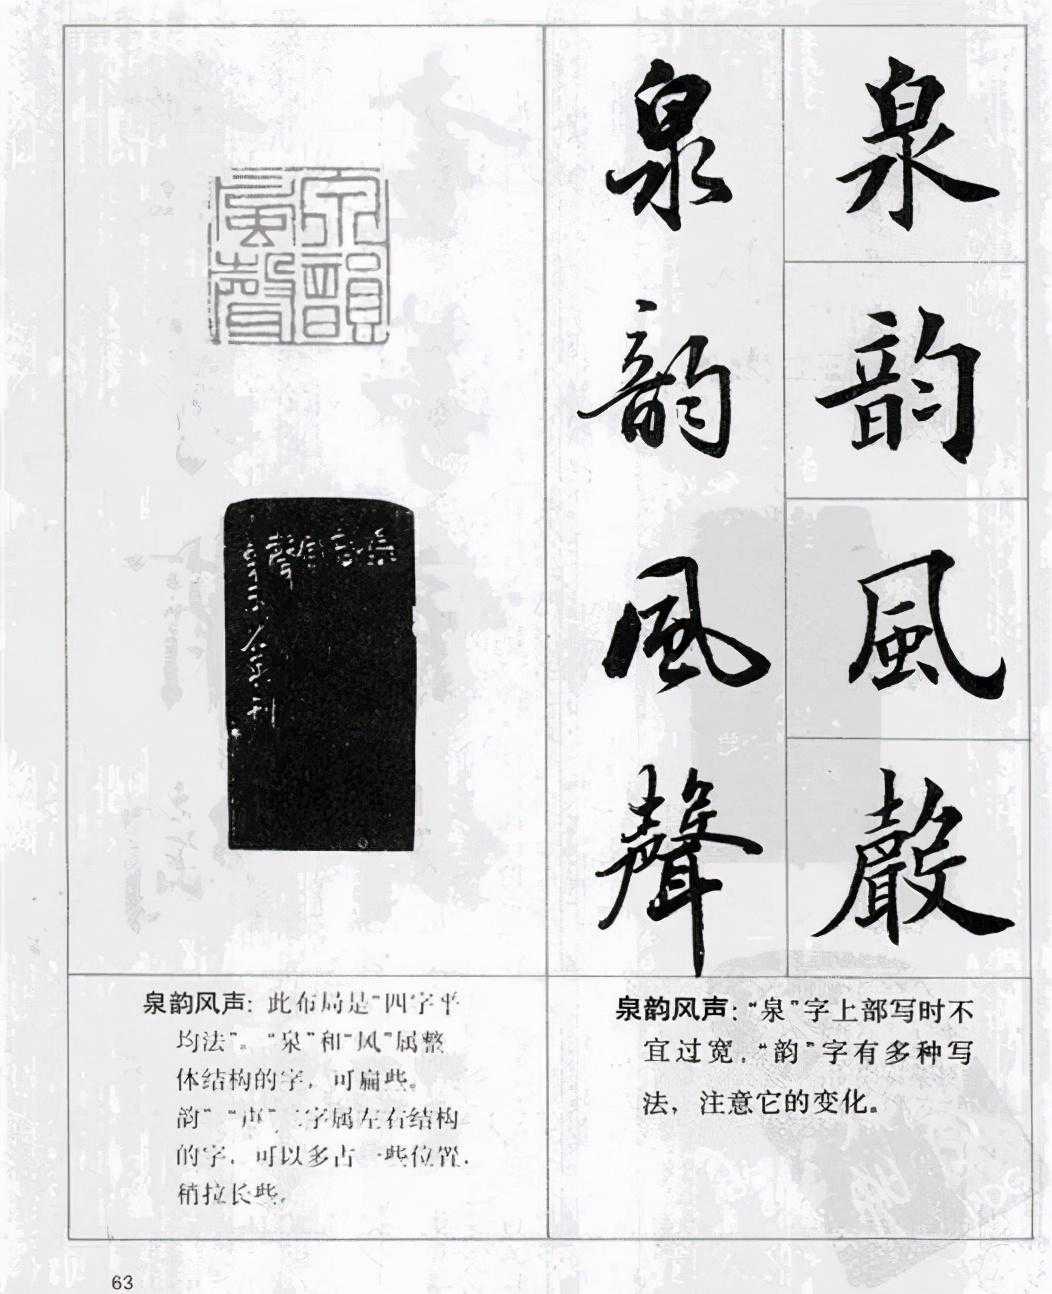 泉韻
風聲
泉韵風聲
泉韵風聲
泉韵風聲
泉韵风声：此布局是“四字平
均法”。“泉”和“风”属整
体结构的字，可扁些。
韵”“声”二字属左右结构
的字，可以多占一些位置，
稍拉长些。
泉韵风声：“泉”字上部写时不
宜过宽，“韵”字有多种写
法，注意它的变化。
63